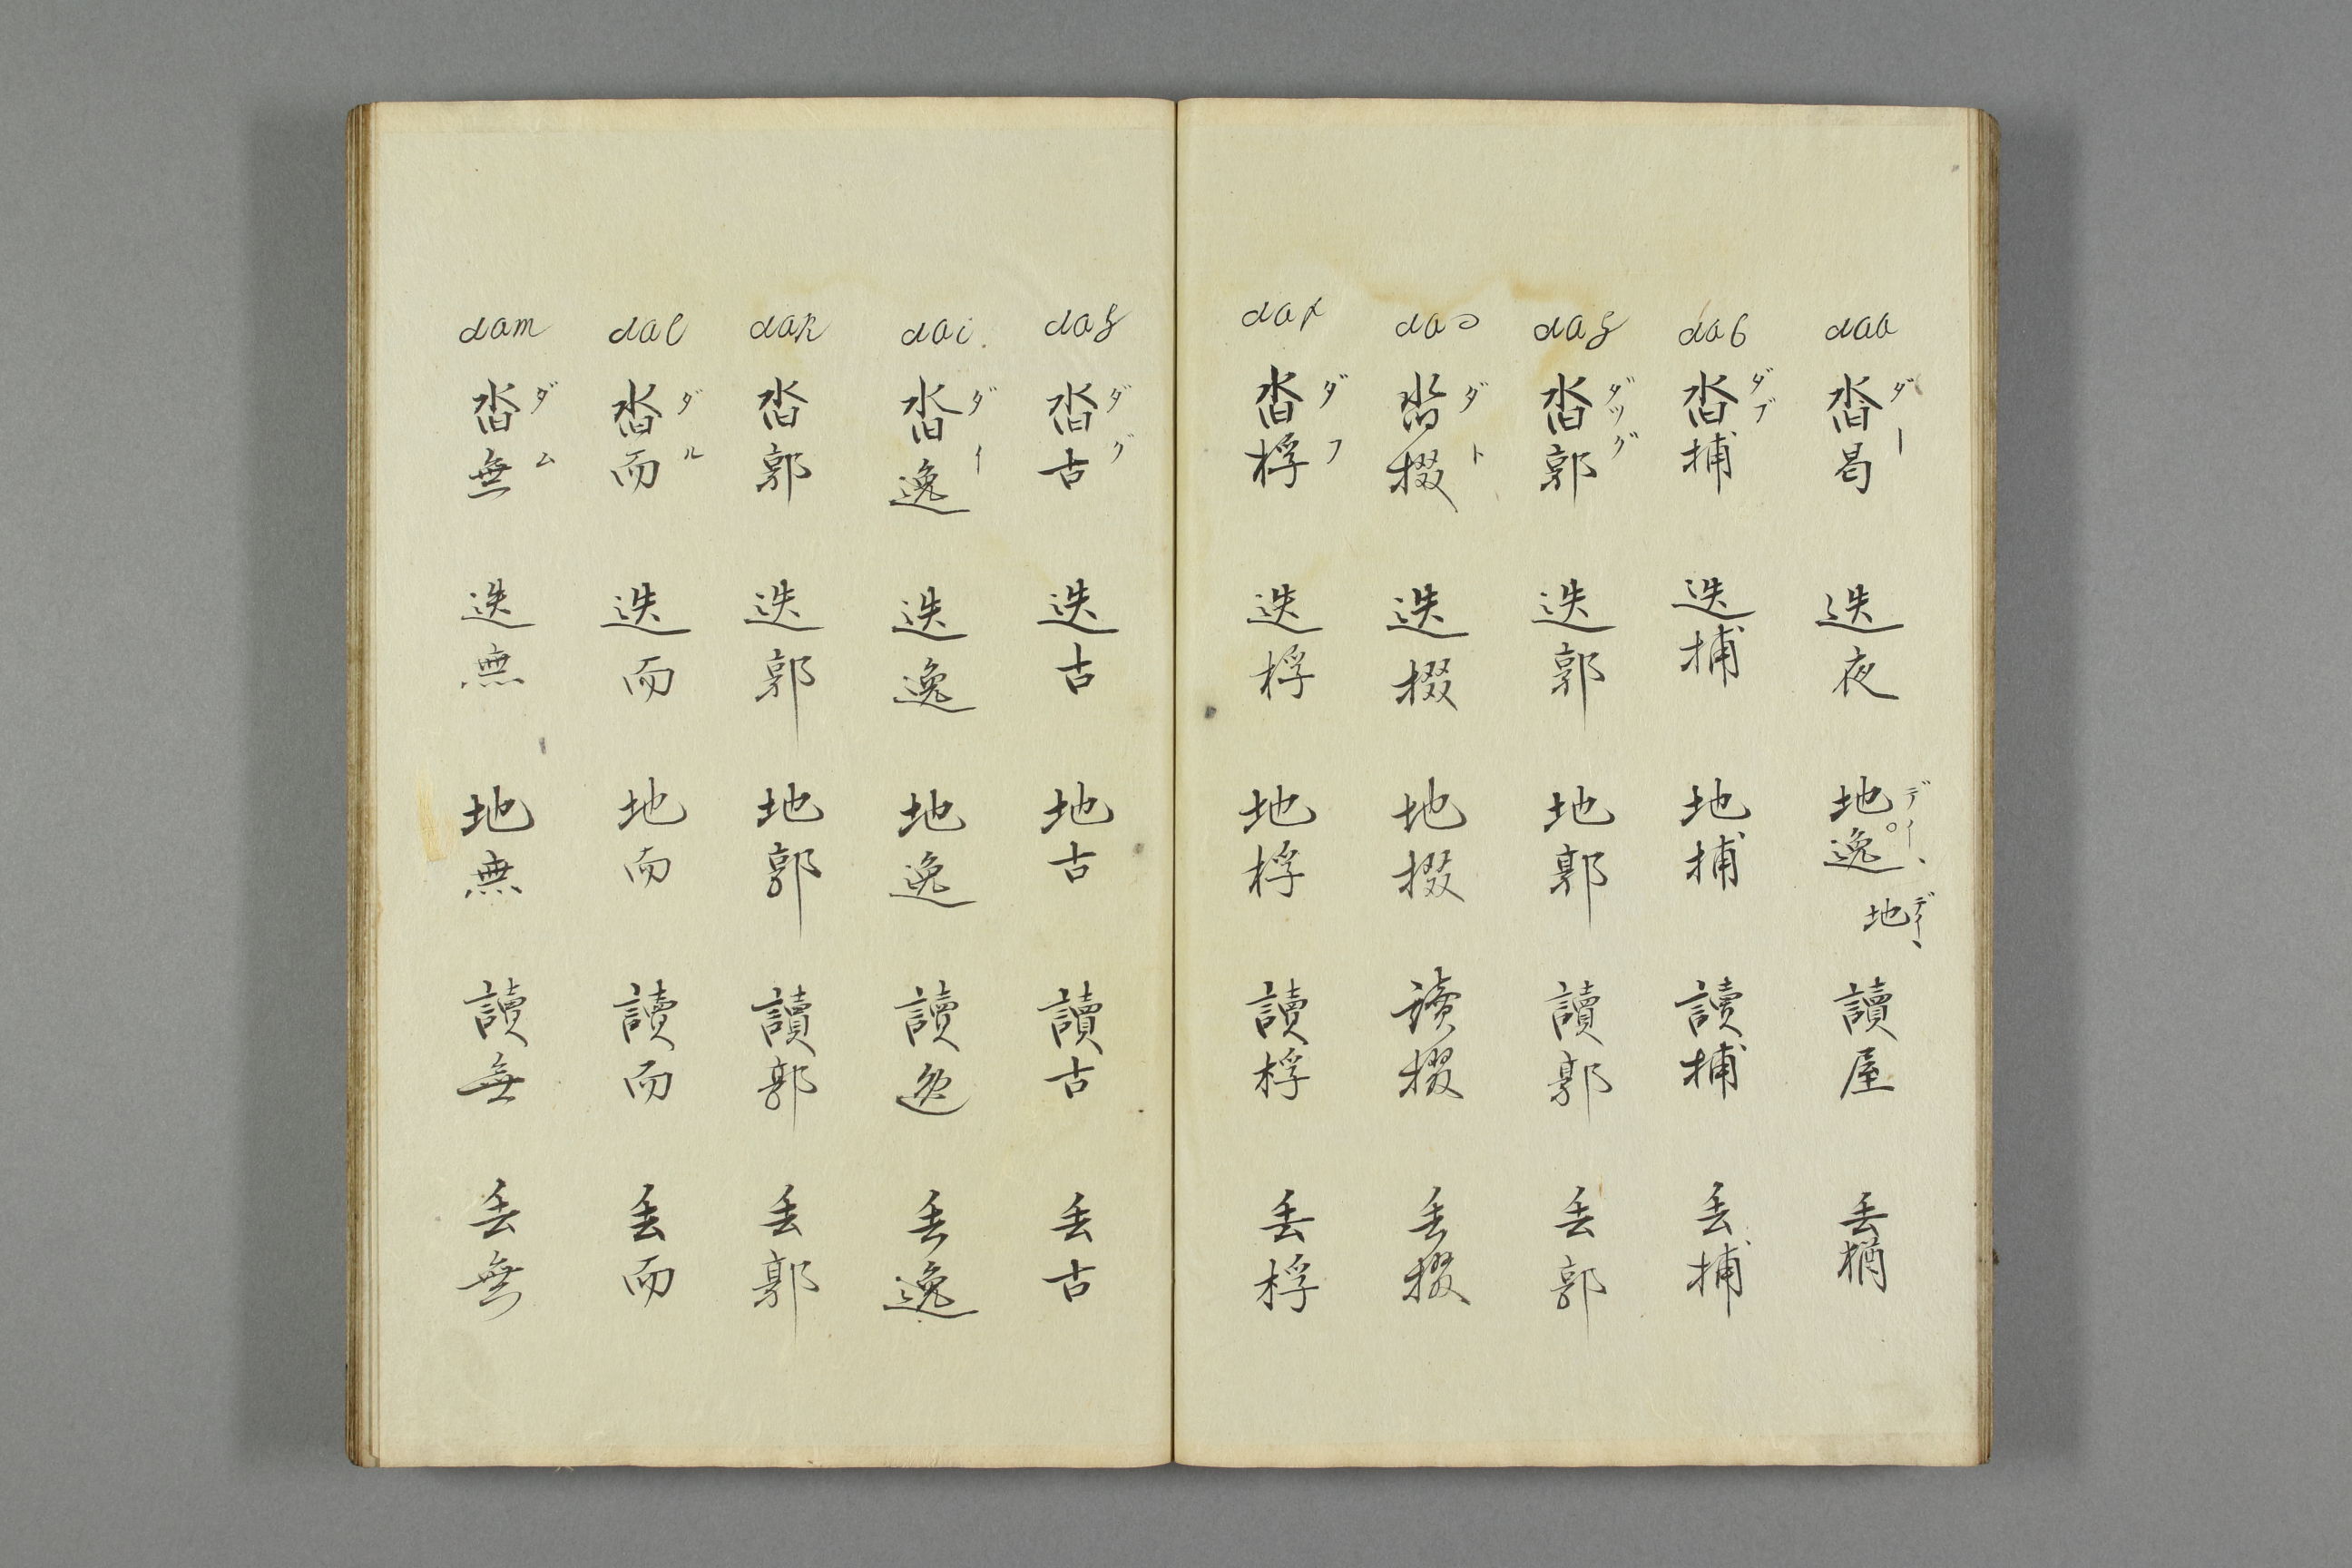 daa 沓曷 ダー 迭夜 地逸 デイ、 地 デイ、 讀屋 丟
dab 沓捕 ダブ 迭捕 地捕 讀捕 丟捕
dag 沓郭 ダツグ 迭郭 地郭 讀郭 丟郭
dad 沓掇 ダト 迭掇 地掇 讀掇 丟掇
daf 沓桴 ダフ 迭桴 地桴 讀桴 丟桴
dag 沓古 ダグ 迭古 地古 讀古 丟古
dai. 沓逸 ダイ 迭逸 地逸 讀逸 丟逸
dak 沓郭 迭郭 地郭 讀郭 丟郭
dal 沓而 ダル 迭而 地而 讀而 丟而
dam 沓無 ダム 迭無 地無 讀無 丟無